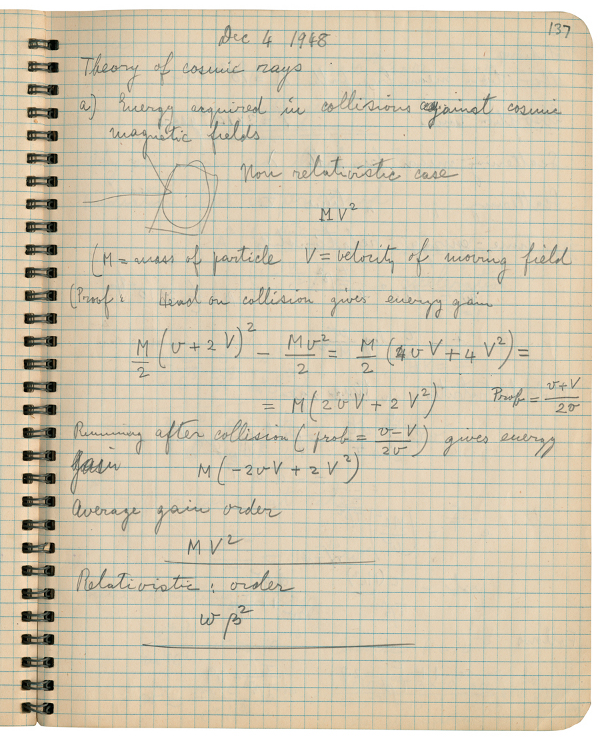 137
Dec 4 1948
Theory of cosmic rays
a) Energy acquired in collisions against cosmic
magnetic fields
Non relativistic case
MV²
(M = mass of particle V = velocity of moving field
(Proof: Head on collision gives energy gain
M/2 (v + 2V)² − Mv²/2 = M/2 (4vV + 4V²) =
= M(2vV + 2V²) Prob = (v+V)/2v
Running after collision (prob = (v−V)/2v) gives energy
gain M(−2vV + 2V²)
Average gain order
MV²
Relativistic: order
wβ²